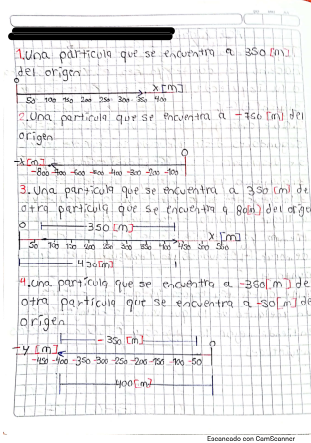 1. Una partícula que se encuentra a 350 [m]
del origen
0
X [m]
50 100 150 200 250 300 350 400
2. Una partícula que se encuentra a -750 [m] del
origen
-X [m] 0
-800 -700 -600 -500 -400 -300 -200 -100
3. Una partícula que se encuentra a 350 [m] de
otra partícula que se encuentra a 80 [m] del orige
0 350 [m] X [m]
50 100 150 200 250 300 350 400 450 500 550
430 [m]
4. Una partícula que se encuentra a -350 [m] de
otra partícula que se encuentra a -50 [m] de
origen
- 350 [m]
-Y [m] 0
-450 -400 -350 -300 -250 -200 -150 -100 -50
400 [m]
Escaneado con CamScanner